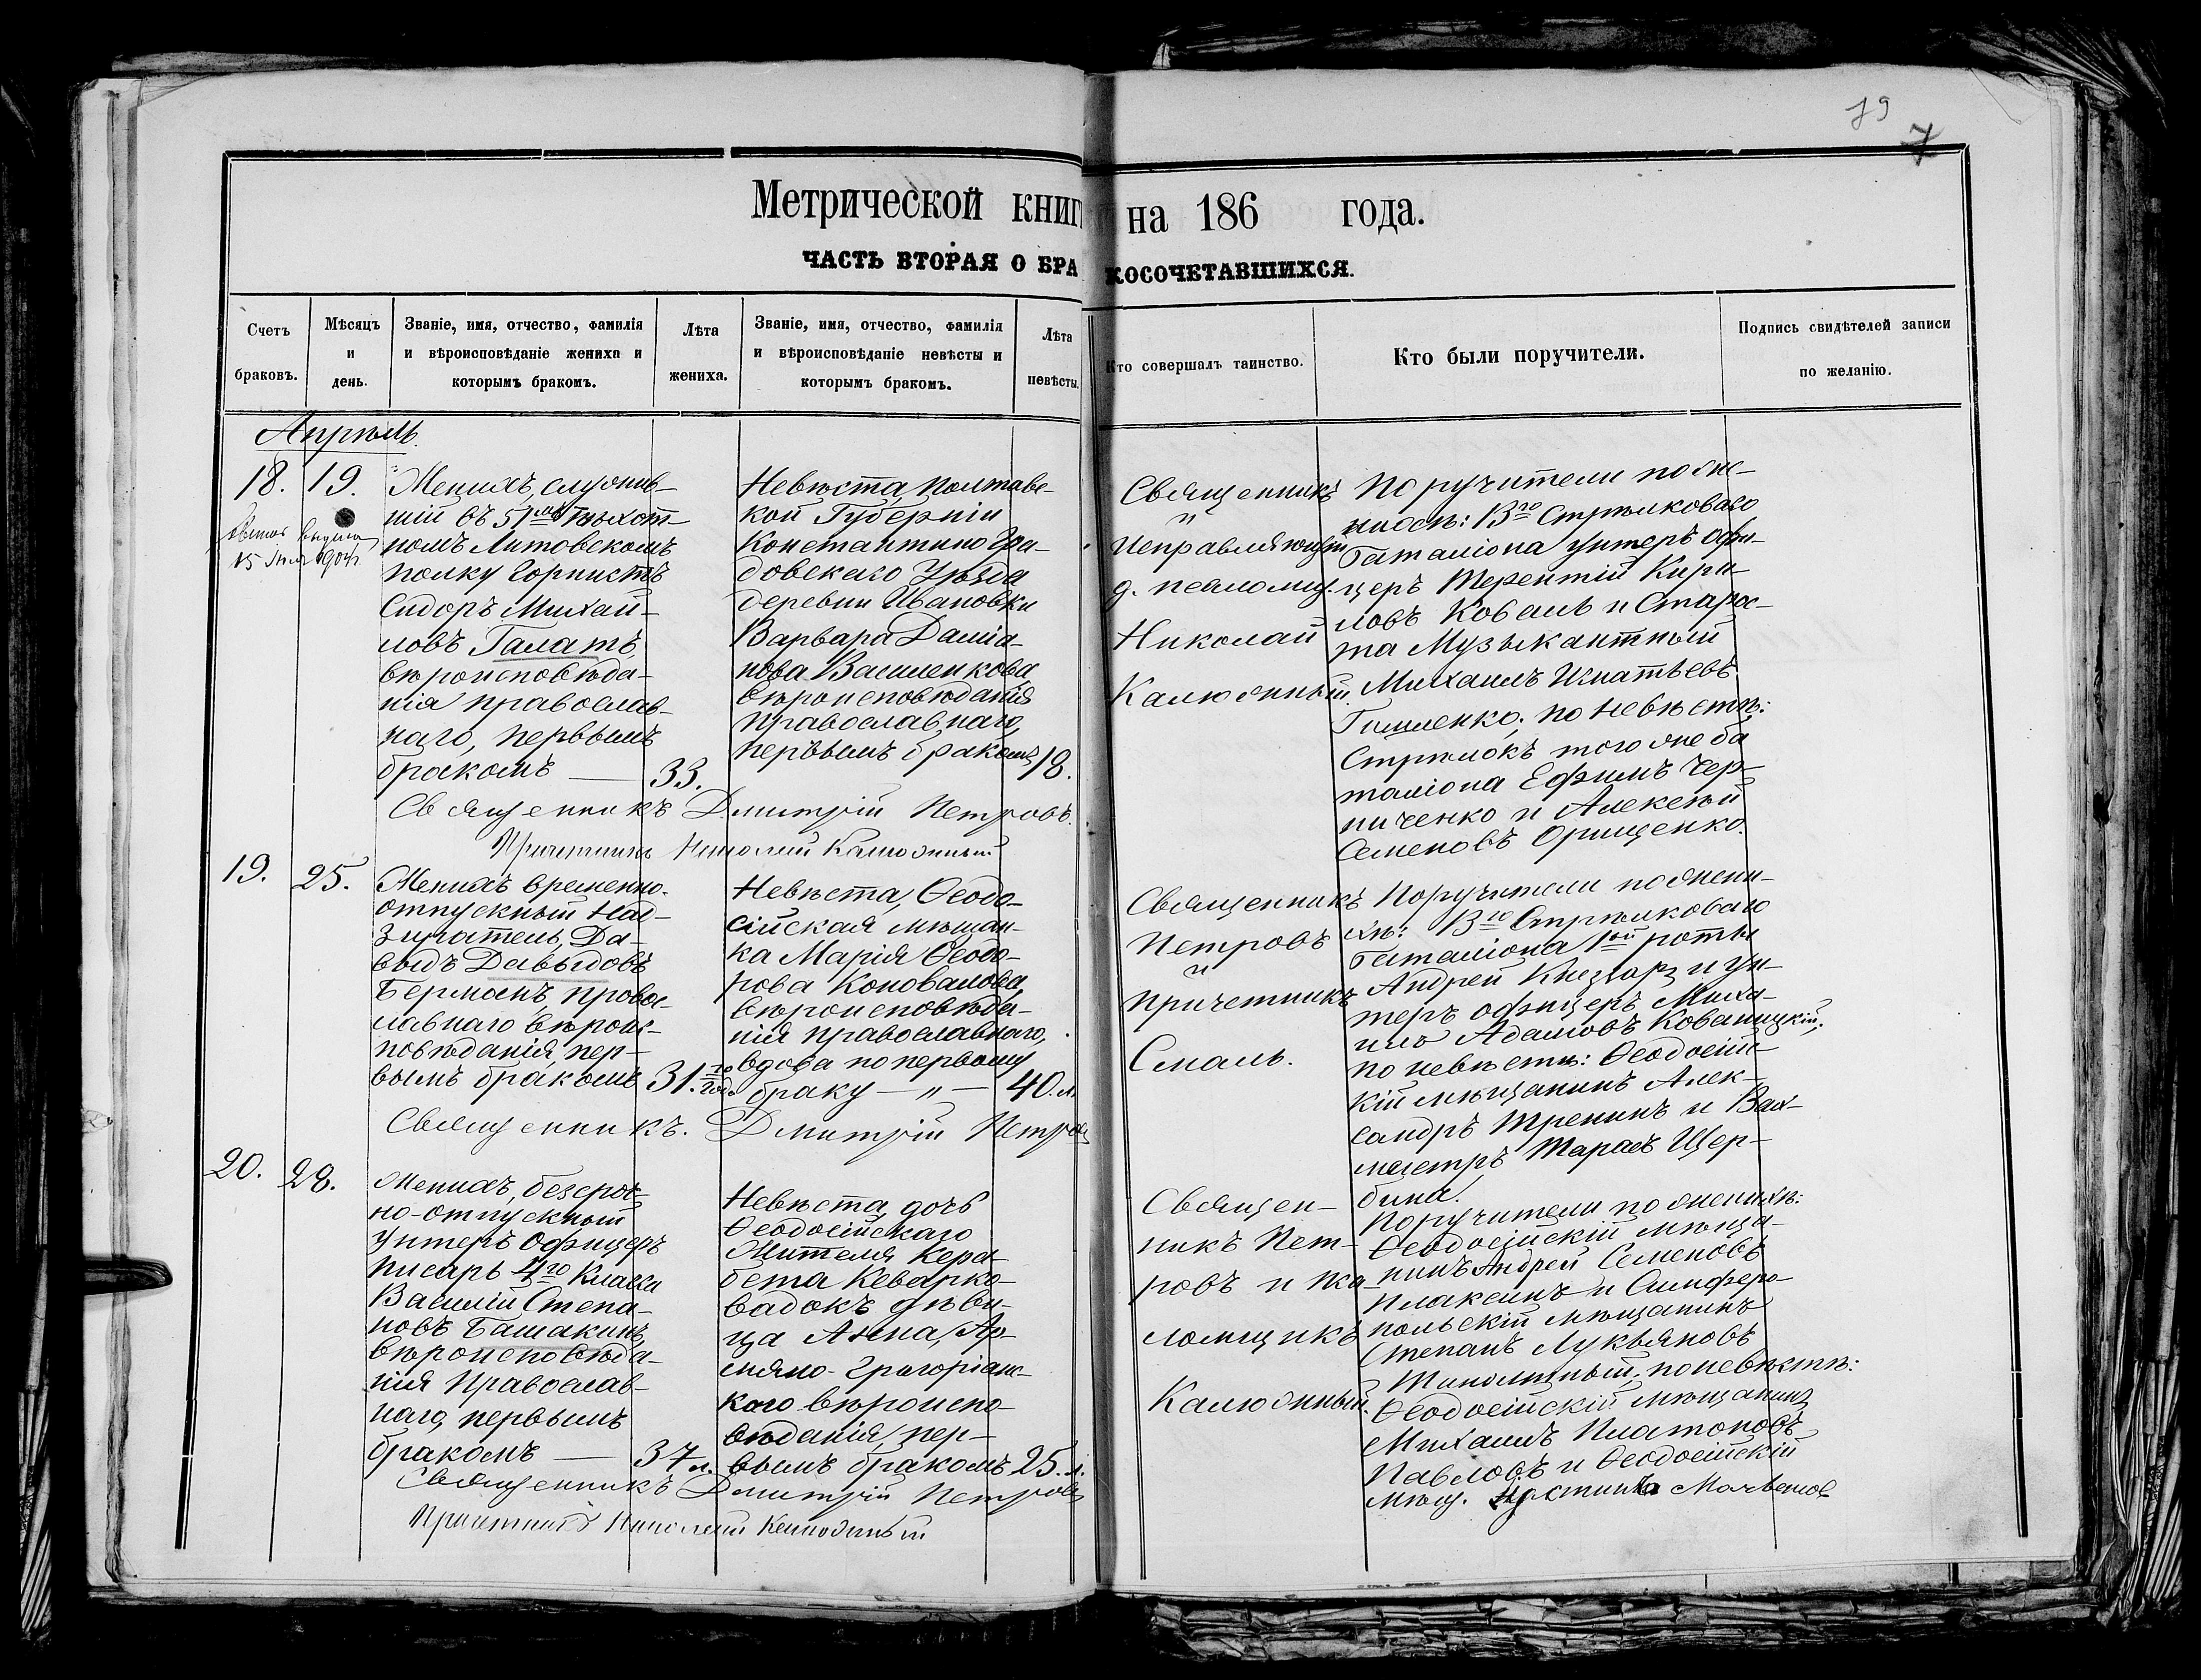 79
7
Метрической книг на 186 года.
ЧАСТЬ ВТОРАЯ О БРА КОСОЧЕТАВШИХСЯ.
Счетъ браковъ.
Мѣсяцъ и день.
Званіе, имя, отчество, фамилія и вѣроисповѣданіе жениха и которымъ бракомъ.
Лѣта жениха.
Званіе, имя, отчество, фамилія и вѣроисповѣданіе невѣсты и которымъ бракомъ.
Лѣта невѣсты.
Кто совершалъ таинство.
Кто были поручители.
Подпись свидѣтелей записи по желанію.
Апрѣль.
18.
19.
15 1904
Женихъ, служив-
шій въ 51мъ пѣхот-
номъ Литовскомъ
полку Горнистъ
Сидоръ Михай-
ловъ Галатъ,
вѣроисповѣда-
нія православ-
наго, первымъ
бракомъ — 33.
Невѣста, Полтавс-
кой Губерніи
Константиногра-
довскаго Уѣзда
деревни Ивановки
Варвара Даміа-
нова Василенкова,
вѣроисповѣданія
православнаго,
первымъ бракомъ 18.
Священникъ
и
Исправляющій
д. псаломщ.
Николай
Калюжный.
Поручители по же-
нихѣ: 13го Стрѣлковаго
Баталіона унтеръ офи-
церъ Терентій Кири-
ловъ Коваль и Старос-
та Музыкантный
Михаилъ Игнатьевъ
; по невѣстѣ:
Стрѣлокъ того же ба
таліона Ефимъ Чер-
ниченко и Алексѣй
Семеновъ Орищенко.
Священникъ Дмитрій Петровъ.
Причетникъ Николай Калюжный
19.
25.
Женихъ временно-
отпускный Над-
зиратель, Да-
выдъ Давыдовъ
Берманъ, правос-
лавнаго вѣроис-
повѣданія, пер-
вымъ бракомъ 31.го год.
Невѣста, Ѳеодо-
сійская мѣщан-
ка Марія Ѳеодо-
рова Коновалова,
вѣроисповѣда-
нія православнаго,
вдова по первому
браку — „ — 40. л.
Священникъ
Петровъ
и
Причетникъ
Смаль.
Поручители по жени-
хѣ: 13го Стрѣлковаго
Баталіона 1ой роты
Андрей и ун-
теръ офицеръ Миха-
илъ Адамовъ Кованицкій;
по невѣстѣ: Ѳеодосійс-
кій мѣщанинъ Алек-
сандръ Тренинъ и Вах-
мистръ Тарасъ Щер-
бина.
Священникъ. Дмитрій Петровъ
20.
28.
Женихъ, безсроч-
но-отпускный
унтеръ офицеръ
писарь 4го Класса
Василій Степа-
новъ Башакинъ,
вѣроисповѣда-
нія Православ-
наго, первымъ
бракомъ — 37 л.
Невѣста, дочь
Ѳеодосійскаго
Жителя Кера-
бета Кеварко-
вадокъ дѣви-
ца Анна, Ар-
мяно-Григоріанс-
каго вѣроиспо-
вѣданія, пер-
вымъ бракомъ 25. л.
Священ-
никъ Пет-
ровъ и
ломщикъ
Калюжный.
Поручители по женихѣ:
Ѳеодосійскій мѣща-
нинъ Андрей Семеновъ
Плаксинъ и Симферо-
польскій мѣщанинъ
Степанъ Лукьяновъ
; по невѣстѣ:
Ѳеодосійскій мѣщанинъ
Михаилъ Платоновъ
Павловъ и Ѳеодосійскій
мѣщ.
Священникъ Дмитрій Петровъ
Причетникъ Николай Калюжный